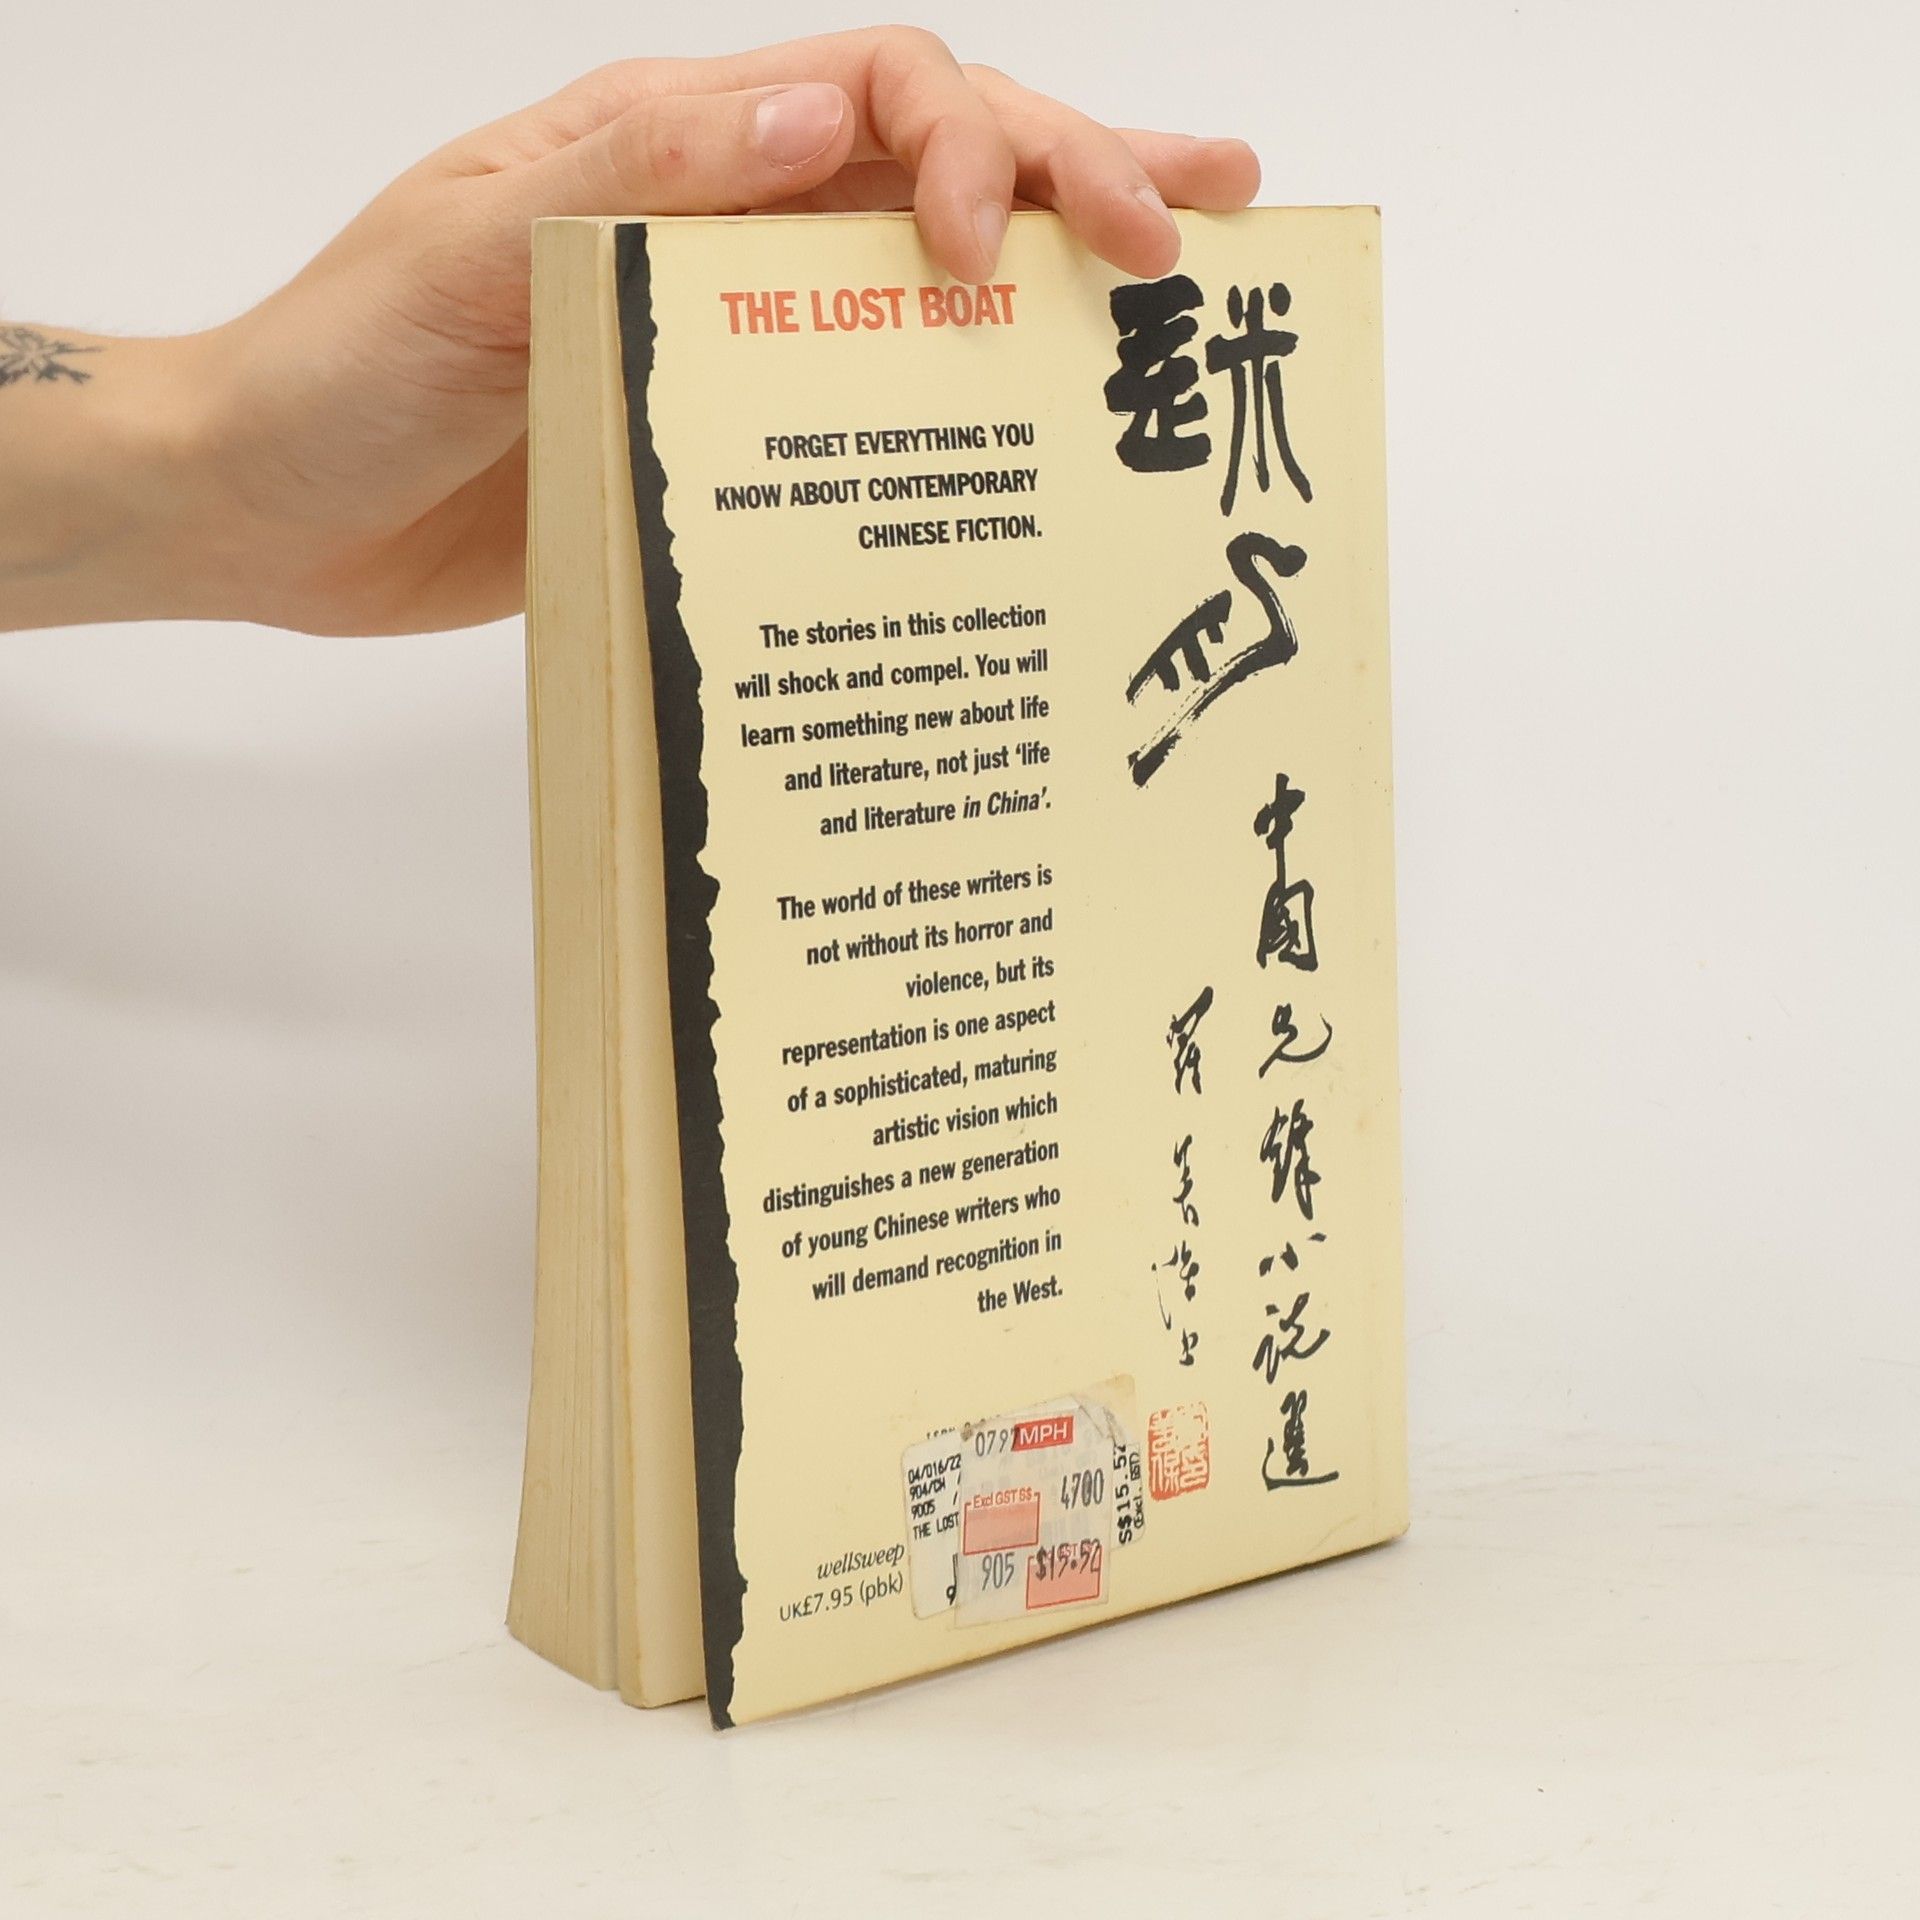 THE LOST BOAT
FORGET EVERYTHING YOU
KNOW ABOUT CONTEMPORARY
CHINESE FICTION.
The stories in this collection
will shock and compel. You will
learn something new about life
and literature, not just ‘life
and literature in China’.
The world of these writers is
not without its horror and
violence, but its
representation is one aspect
of a sophisticated, maturing
artistic vision which
distinguishes a new generation
of young Chinese writers who
will demand recognition in
the West.
中國先鋒小説選
羅
wellsweep
UK£7.95 (pbk)
0797 MPH
04/016/22
904/CH /
9005 /
THE LOST
Excl GST S$
4700
905 $15.52
S$15.52
(Excl. GST)